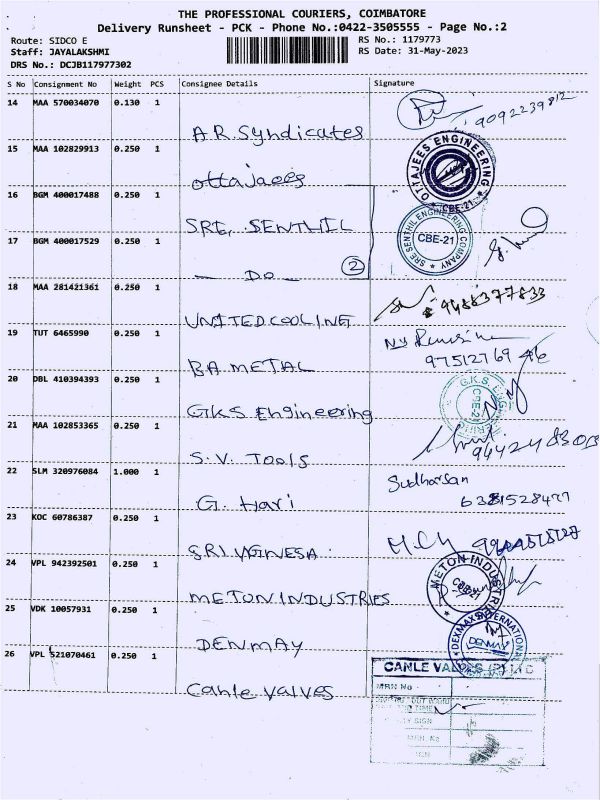 THE PROFESSIONAL COURIERS, COIMBATORE
Delivery Runsheet - PCK - Phone No.:0422-3505555 - Page No.:2
Route: SIDCO E
RS No.: 1179773
Staff: JAYALAKSHMI
RS Date: 31-May-2023
DRS No.: DCJB117977302
S No Consignment No Weight PCS Consignee Details Signature
14 MAA 570034070 0.130 1
9092239812
A R Syndicates
15 MAA 102829913 0.250 1
OTTAJEES ENGINEERING
CBE-21
ottajees
16 BGM 400017488 0.250 1
SRE SENTHIL ENGINEERING COMPANY
CBE-21
SRE. SENTHIL
17 BGM 400017529 0.250 1
— DO —
2
18 MAA 281421361 0.250 1
9488377833
UNITED COOLINE
19 TUT 6465990 0.250 1
BA METAL
20 DBL 410394393 0.250 1
G.K.S. ENG
CBE-21
GKS Engineering
21 MAA 102853365 0.250 1
S.V. TOOLS
22 SLM 320976084 1.000 1
Sudharsan
G. Hari
23 KOC 60786387 0.250 1
24 VPL 942392501 0.250 1
METON INDUSTRIES
CBE-21
METON INDUSTRIES
25 VDK 10057931 0.250 1
INTERNATIONAL
DENMAY
DENMAY
26 VPL 521070461 0.250 1
CANLE VALVES (P) LTD
MRN No
Canle valves